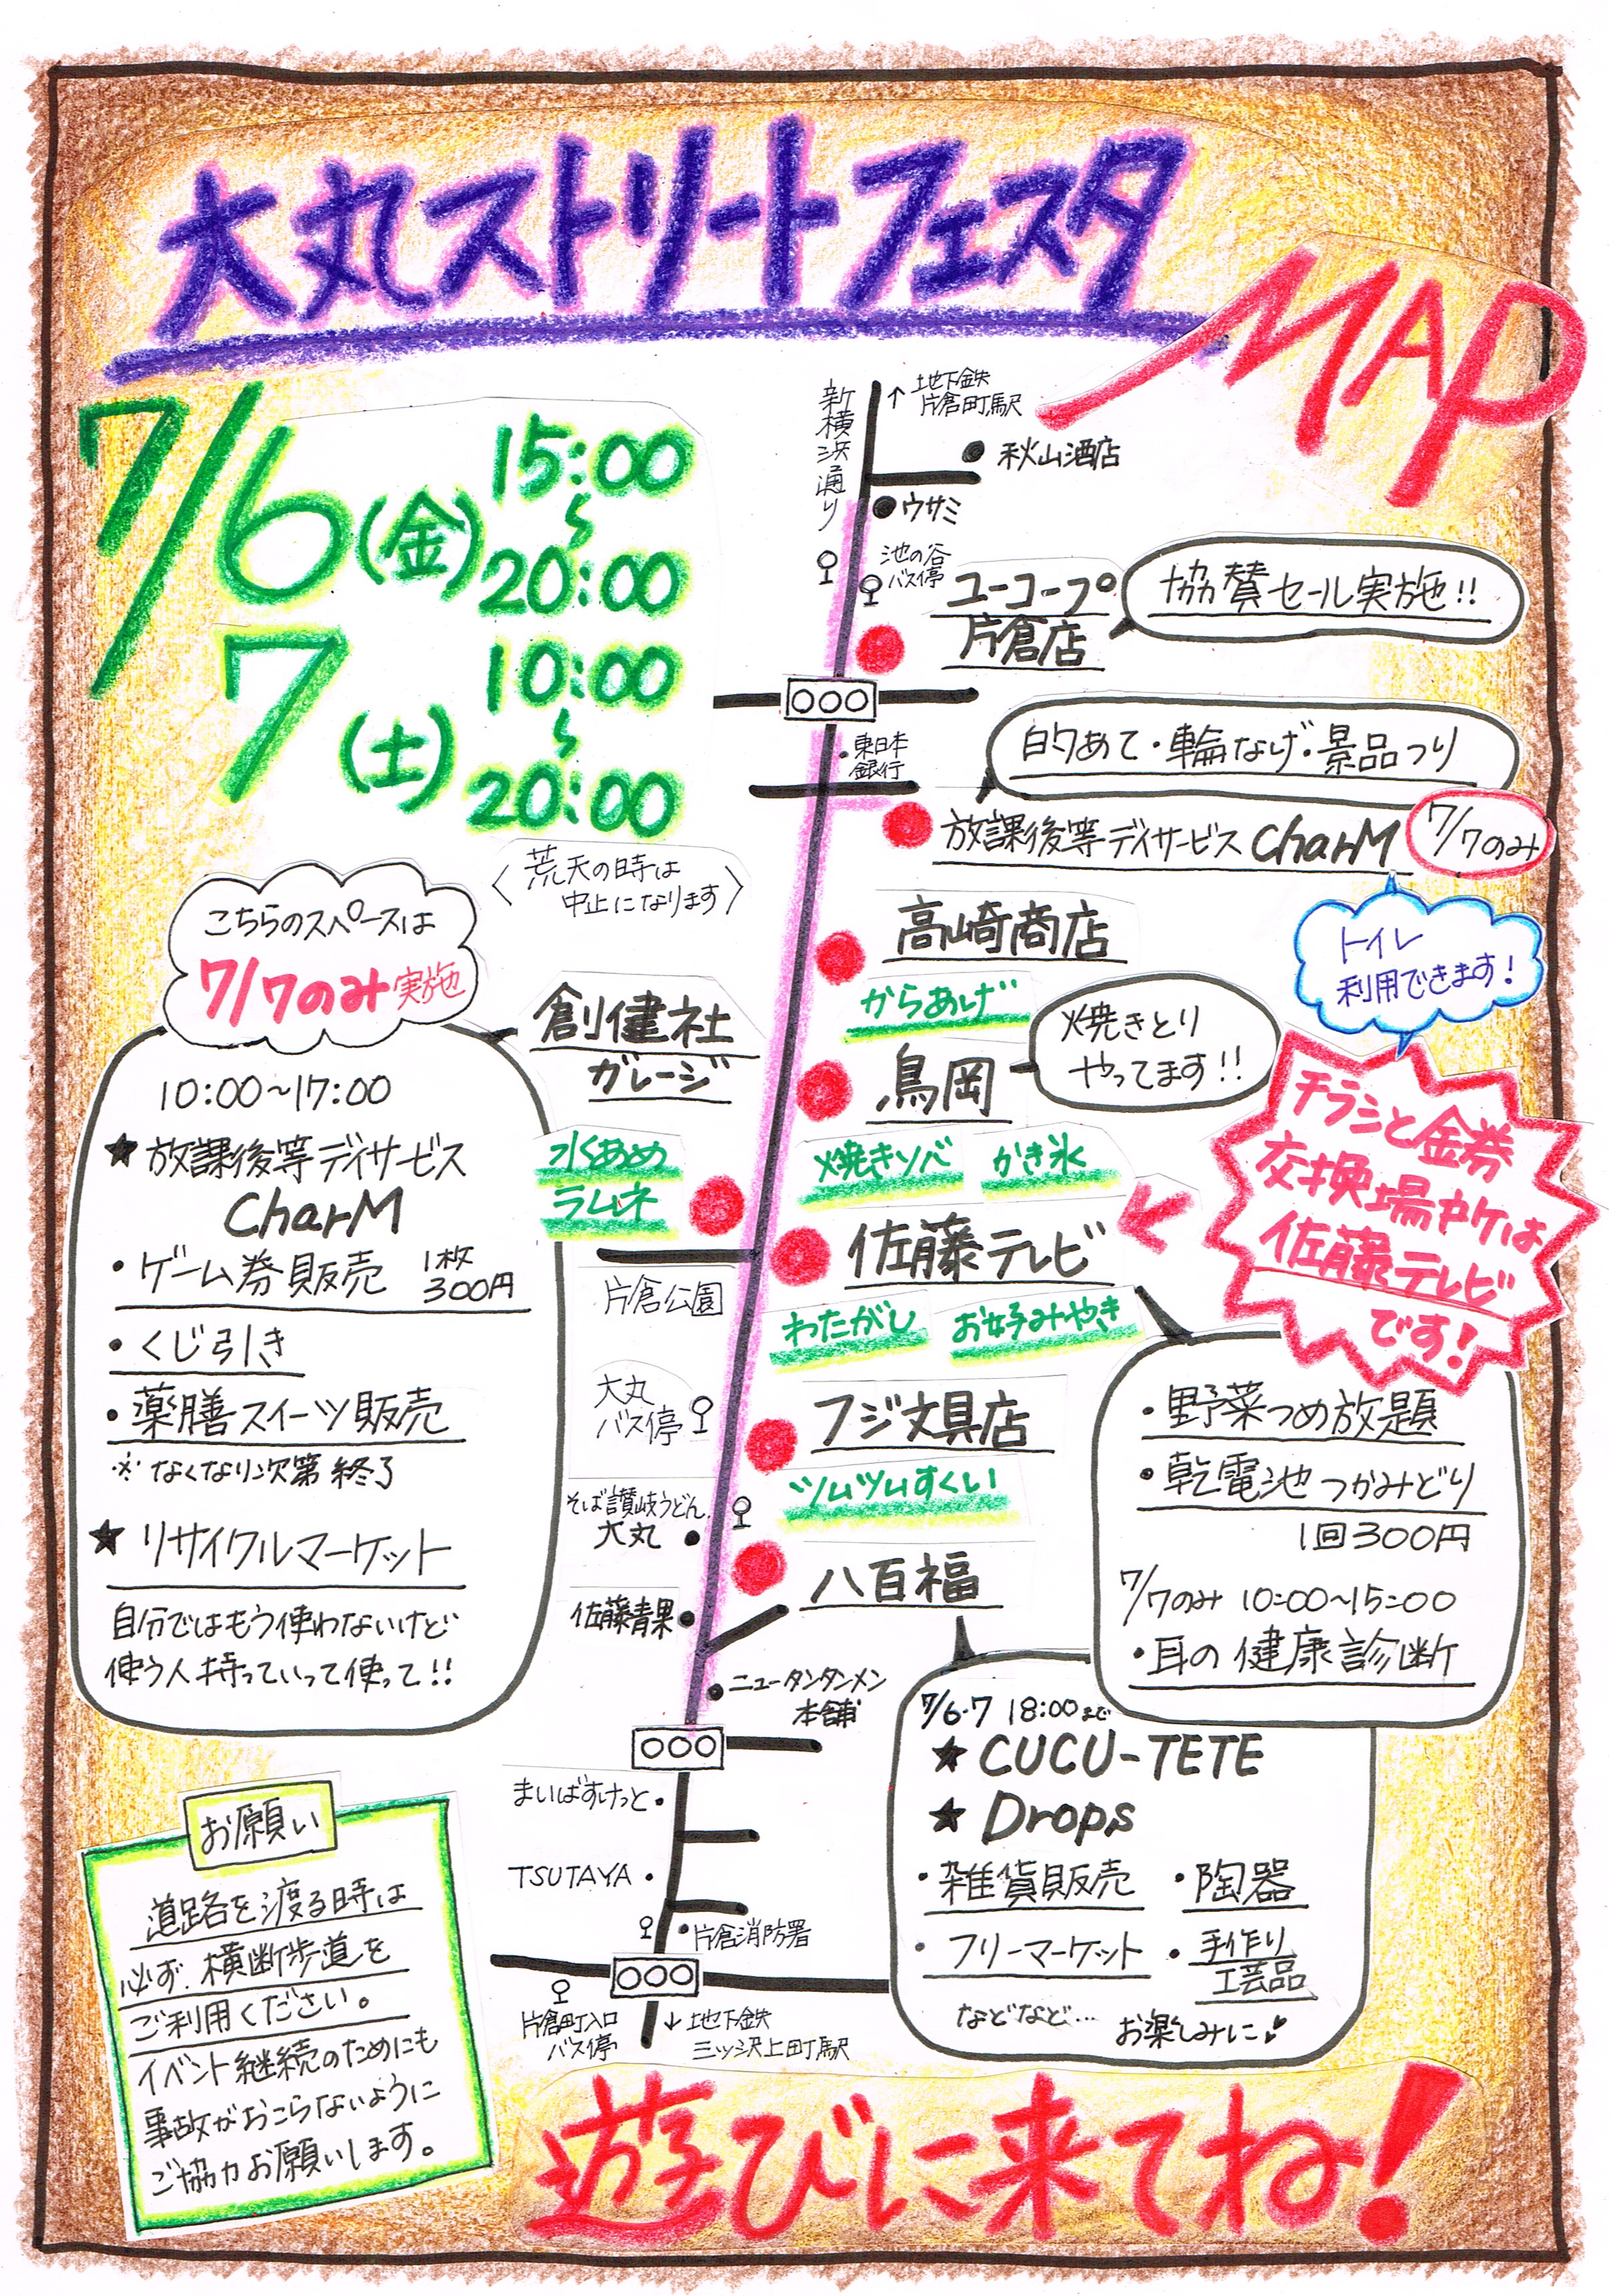 大丸ストリートフェスタ
MAP
7/6(金) 15:00
〜
20:00
7(土) 10:00
〜
20:00
〈荒天の時は
中止になります〉
新横浜通り
↑地下鉄
片倉町駅
秋山酒店
ウサミ
池の谷
バス停
ユーコープ
片倉店
協賛セール実施!!
東日本
銀行
的あて・輪なげ・景品つり
放課後等デイサービス CharM
7/7のみ
トイレ
利用できます!
高崎商店
からあげ
鳥岡
焼きとり
やってます!!
焼きソバ かき氷
佐藤テレビ
わたがし お好みやき
チラシと金券
交換場所は
佐藤テレビ
です!
・野菜つめ放題
・乾電池つかみどり
1回300円
7/7のみ 10:00〜15:00
・耳の健康診断
こちらのスペースは
7/7のみ実施
創健社
ガレージ
水あめ
ラムネ
10:00〜17:00
★放課後等デイサービス
CharM
・ゲーム券販売 1枚
300円
・くじ引き
・薬膳スイーツ販売
※なくなり次第終了
★リサイクルマーケット
自分ではもう使わないけど
使う人持っていって使って!!
片倉公園
大丸
バス停
フジ文具店
ツムツムすくい
そば讃岐うどん
大丸
八百福
佐藤青果
ニュータンタンメン
本舗
7/6・7 18:00まで
★CUCU-TETE
★Drops
・雑貨販売 ・陶器
・フリーマーケット ・手作り
工芸品
などなど… お楽しみに
まいばすけっと
TSUTAYA
片倉消防署
片倉町入口
バス停
↓地下鉄
三ッ沢上町駅
お願い
道路を渡る時は
必ず、横断歩道を
ご利用ください。
イベント継続のためにも
事故がおこらないように
ご協力お願いします。
遊びに来てね!